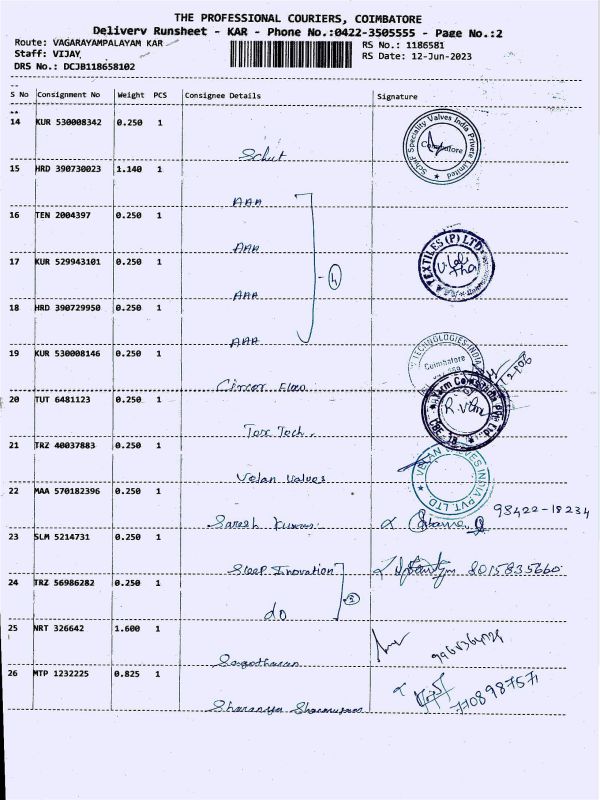 THE PROFESSIONAL COURIERS, COIMBATORE
Delivery Runsheet - KAR - Phone No.:0422-3505555 - Page No.:2
Route: VAGARAYAMPALAYAM KAR
RS No.: 1186581
Staff: VIJAY
RS Date: 12-Jun-2023
DRS No.: DCJB118658102
S No Consignment No Weight PCS Consignee Details Signature
14 KUR 530008342 0.250 1
Schuf
Schuf Speciality Valves India Private Limited
Coimbatore
15 HRD 390730023 1.140 1
AAA
16 TEN 2004397 0.250 1
AAA
TEXTILES (P) LTD
17 KUR 529943101 0.250 1
AAA
4
18 HRD 390729950 0.250 1
AAA
19 KUR 530008146 0.250 1
TECHNOLOGIES INDIA
Coimbatore
Circor Flow
20 TUT 6481123 0.250 1
Tex Tech.
21 TRZ 40037883 0.250 1
Velan Valves
VELAN VALVES INDIA PVT. LTD.
22 MAA 570182396 0.250 1
Saresh Kumar
98422-18234
23 SLM 5214731 0.250 1
Sleep Inovation
8015835660
24 TRZ 56986282 0.250 1
do
2
25 NRT 326642 1.600 1
26 MTP 1232225 0.825 1
7708987571